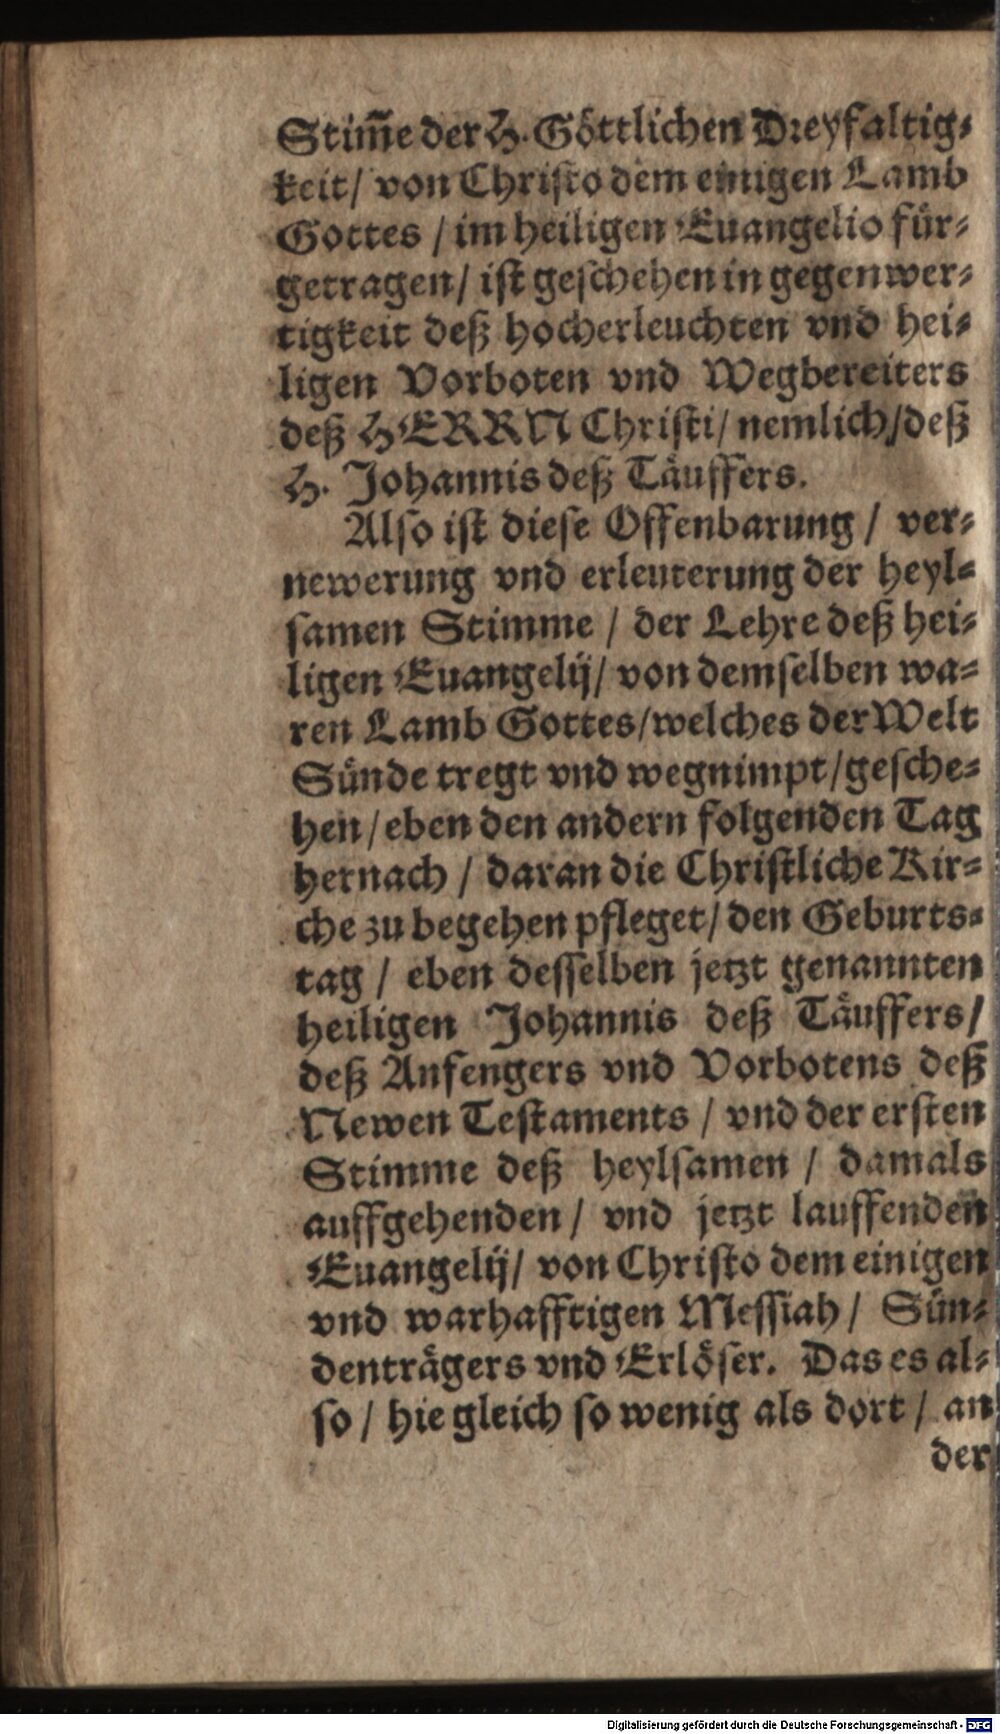 Stim̃e der H. Göttlichen Dreyfaltig-
keit/ von Christo dem einigen Lamb
Gottes / im heiligen Euangelio für-
getragen/ ist geschehen in gegenwer-
tigkeit deß hocherleuchten vnd hei-
ligen Vorboten vnd Wegbereiters
deß HERRN Christi/ nemlich/deß
H. Johannis deß Täuffers.
Also ist diese Offenbarung / ver-
newerung vnd erleuterung der heyl-
samen Stimme / der Lehre deß hei-
ligen Euangelij/ von demselben wa-
ren Lamb Gottes/welches der Welt
Sünde tregt vnd wegnimpt/gesche-
hen/eben den andern folgenden Tag
hernach / daran die Christliche Kir-
che zu begehen pfleget/ den Geburts-
tag / eben desselben jetzt genannten
heiligen Johannis deß Täuffers/
deß Anfengers vnd Vorbotens deß
Newen Testaments / vnd der ersten
Stimme deß heylsamen / damals
auffgehenden/ vnd jetzt lauffenden
Euangelij/ von Christo dem einigen
vnd warhafftigen Messiah/ Sün-
denträgers vnd Erlöser. Das es al-
so / hie gleich so wenig als dort / an
der
Digitalisierung gefördert durch die Deutsche Forschungsgemeinschaft - DFG